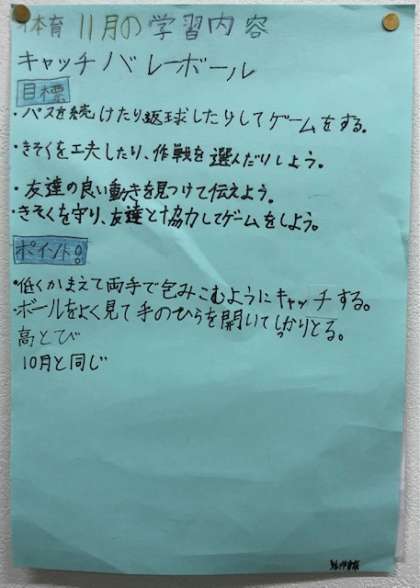 体育 11月の学習内容
キャッチバレーボール
目標
・パスを続けたり返球したりしてゲームをする。
・きそくを工夫したり、作戦を選んだりしよう。
・友達の良い動きを見つけて伝えよう。
・きそくを守り、友達と協力してゲームをしよう。
ポイント!
・低くかまえて両手で包みこむようにキャッチする。
・ボールをよく見て手のひらを開いてしっかりとる。
高とび
10月と同じ